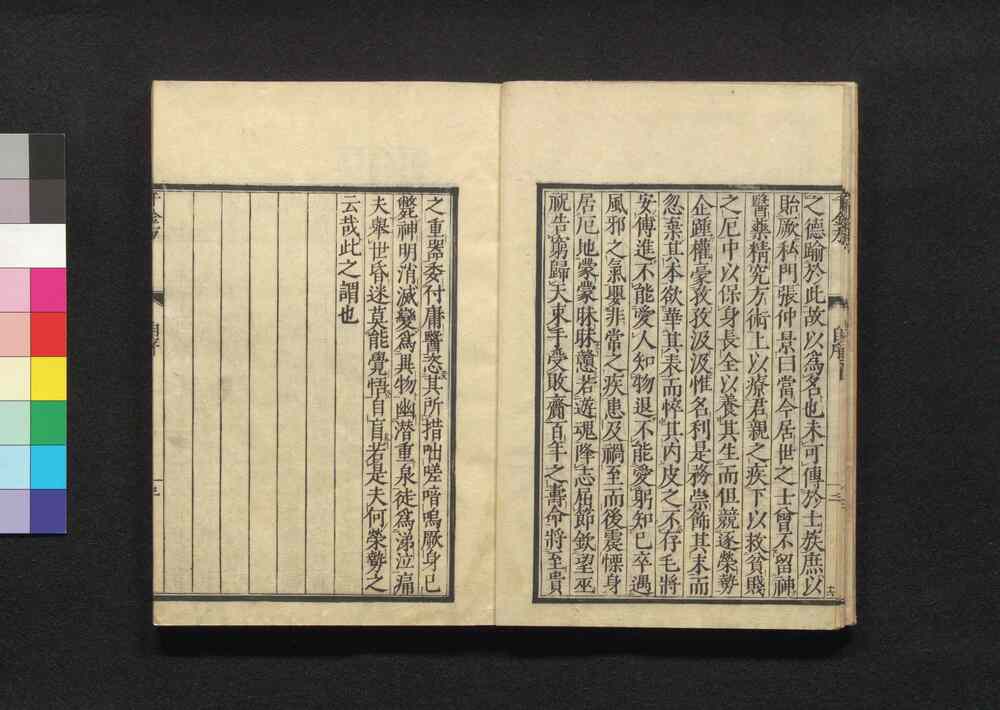 之德踰於此故以爲名也未可傳於士族庶以
貽厥私門張仲景曰當今居世之士曾不留神
醫藥精究方術上以療君親之疾下以救貧賤
之厄中以保身長全以養其生而但競逐榮勢
企踵權豪孜孜汲汲惟名利是務崇飾其末而
忽棄其本欲華其表而悴其內皮之不存毛將
安傅進不能愛人知物退不能愛躬知己卒遇
風邪之氣嬰非常之疾患及禍至而後震慄身
居厄地蒙蒙昧昧戇若遊魂降志屈節欽望巫
祝告窮歸天束手受敗齎百年之壽命將至貴
之重器委付庸醫恣其所措咄嗟喑嗚厥身已
斃神明消滅變爲異物幽潛重泉徒爲涕泣痛
夫舉世昏迷莫能覺悟自盲若是夫何榮勢之
云哉此之謂也